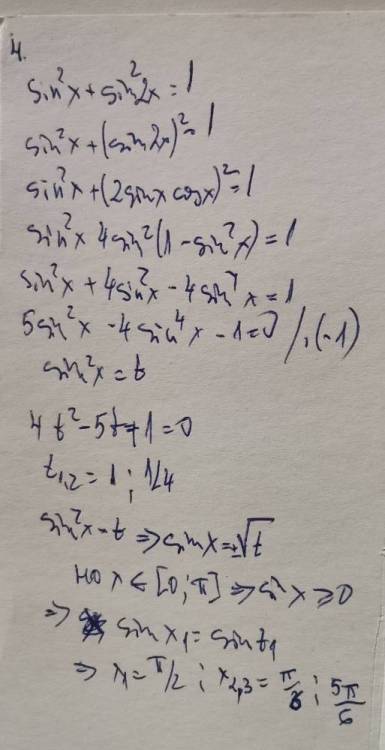 4.
sin²x + sin²2x = 1
sin²x + (sin2x)² = 1
sin²x + (2sinx cosx)² = 1
sin²x 4sin²(1 - sin²x) = 1
sin²x + 4sin²x - 4sin⁴x = 1
5sin²x - 4sin⁴x - 1 = 0 /.(-1)
sin²x = t
4t² - 5t + 1 = 0
t₁,₂ = 1 ; 1/4
sin²x = t ⇒ sinx = ±√t
но x ∈ [0; π] ⇒ sin x ⩾ 0
⇒ sin x₁ = sin t₁
⇒ x₁ = π/2 ; x₂,₃ = π/6 ; 5π/6